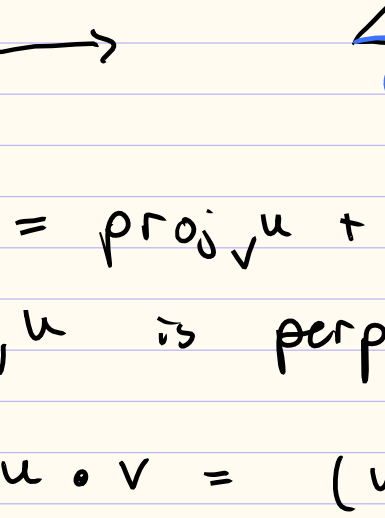 = proj_v u +
u is perp
u • v = (